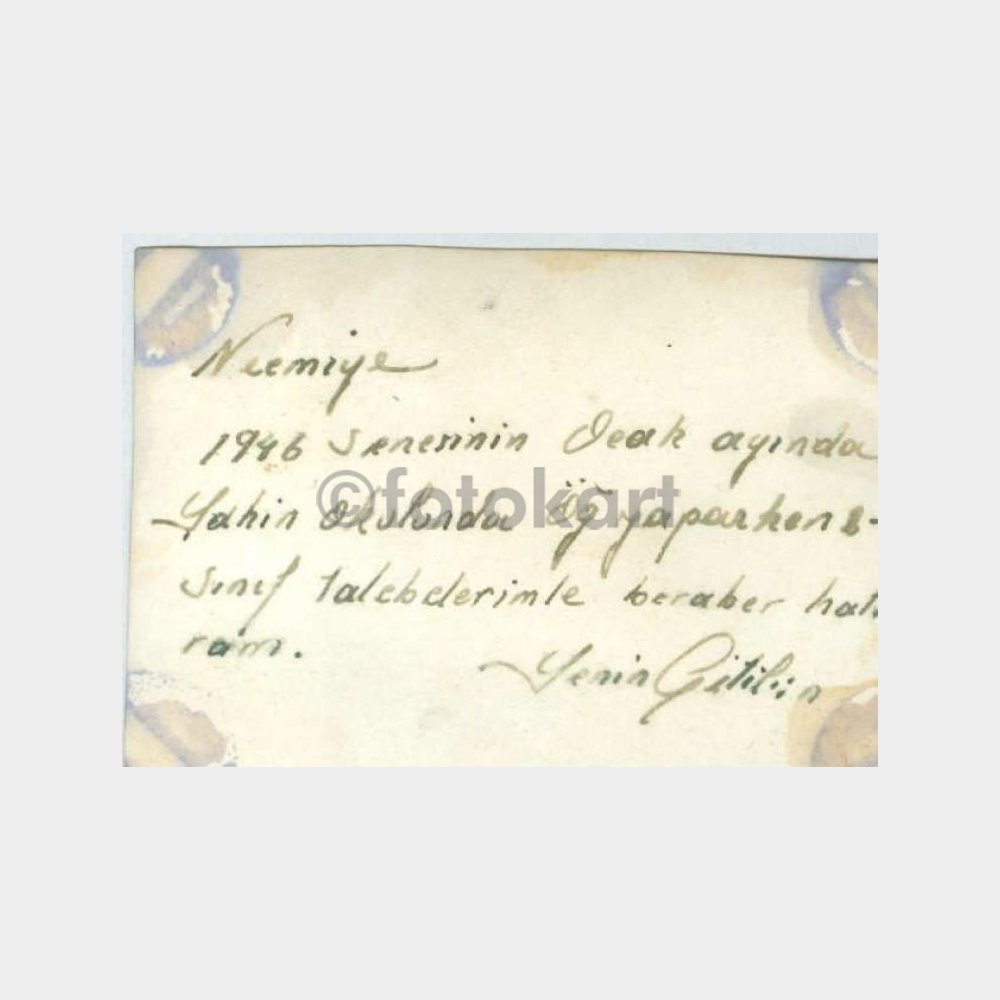 Necmiye
1946 Senesinin Ocak ayında
Şahin Okulunda Öğ yaparken 2-
Sınıf talebelerimle beraber hatı
ram.
©fotokart